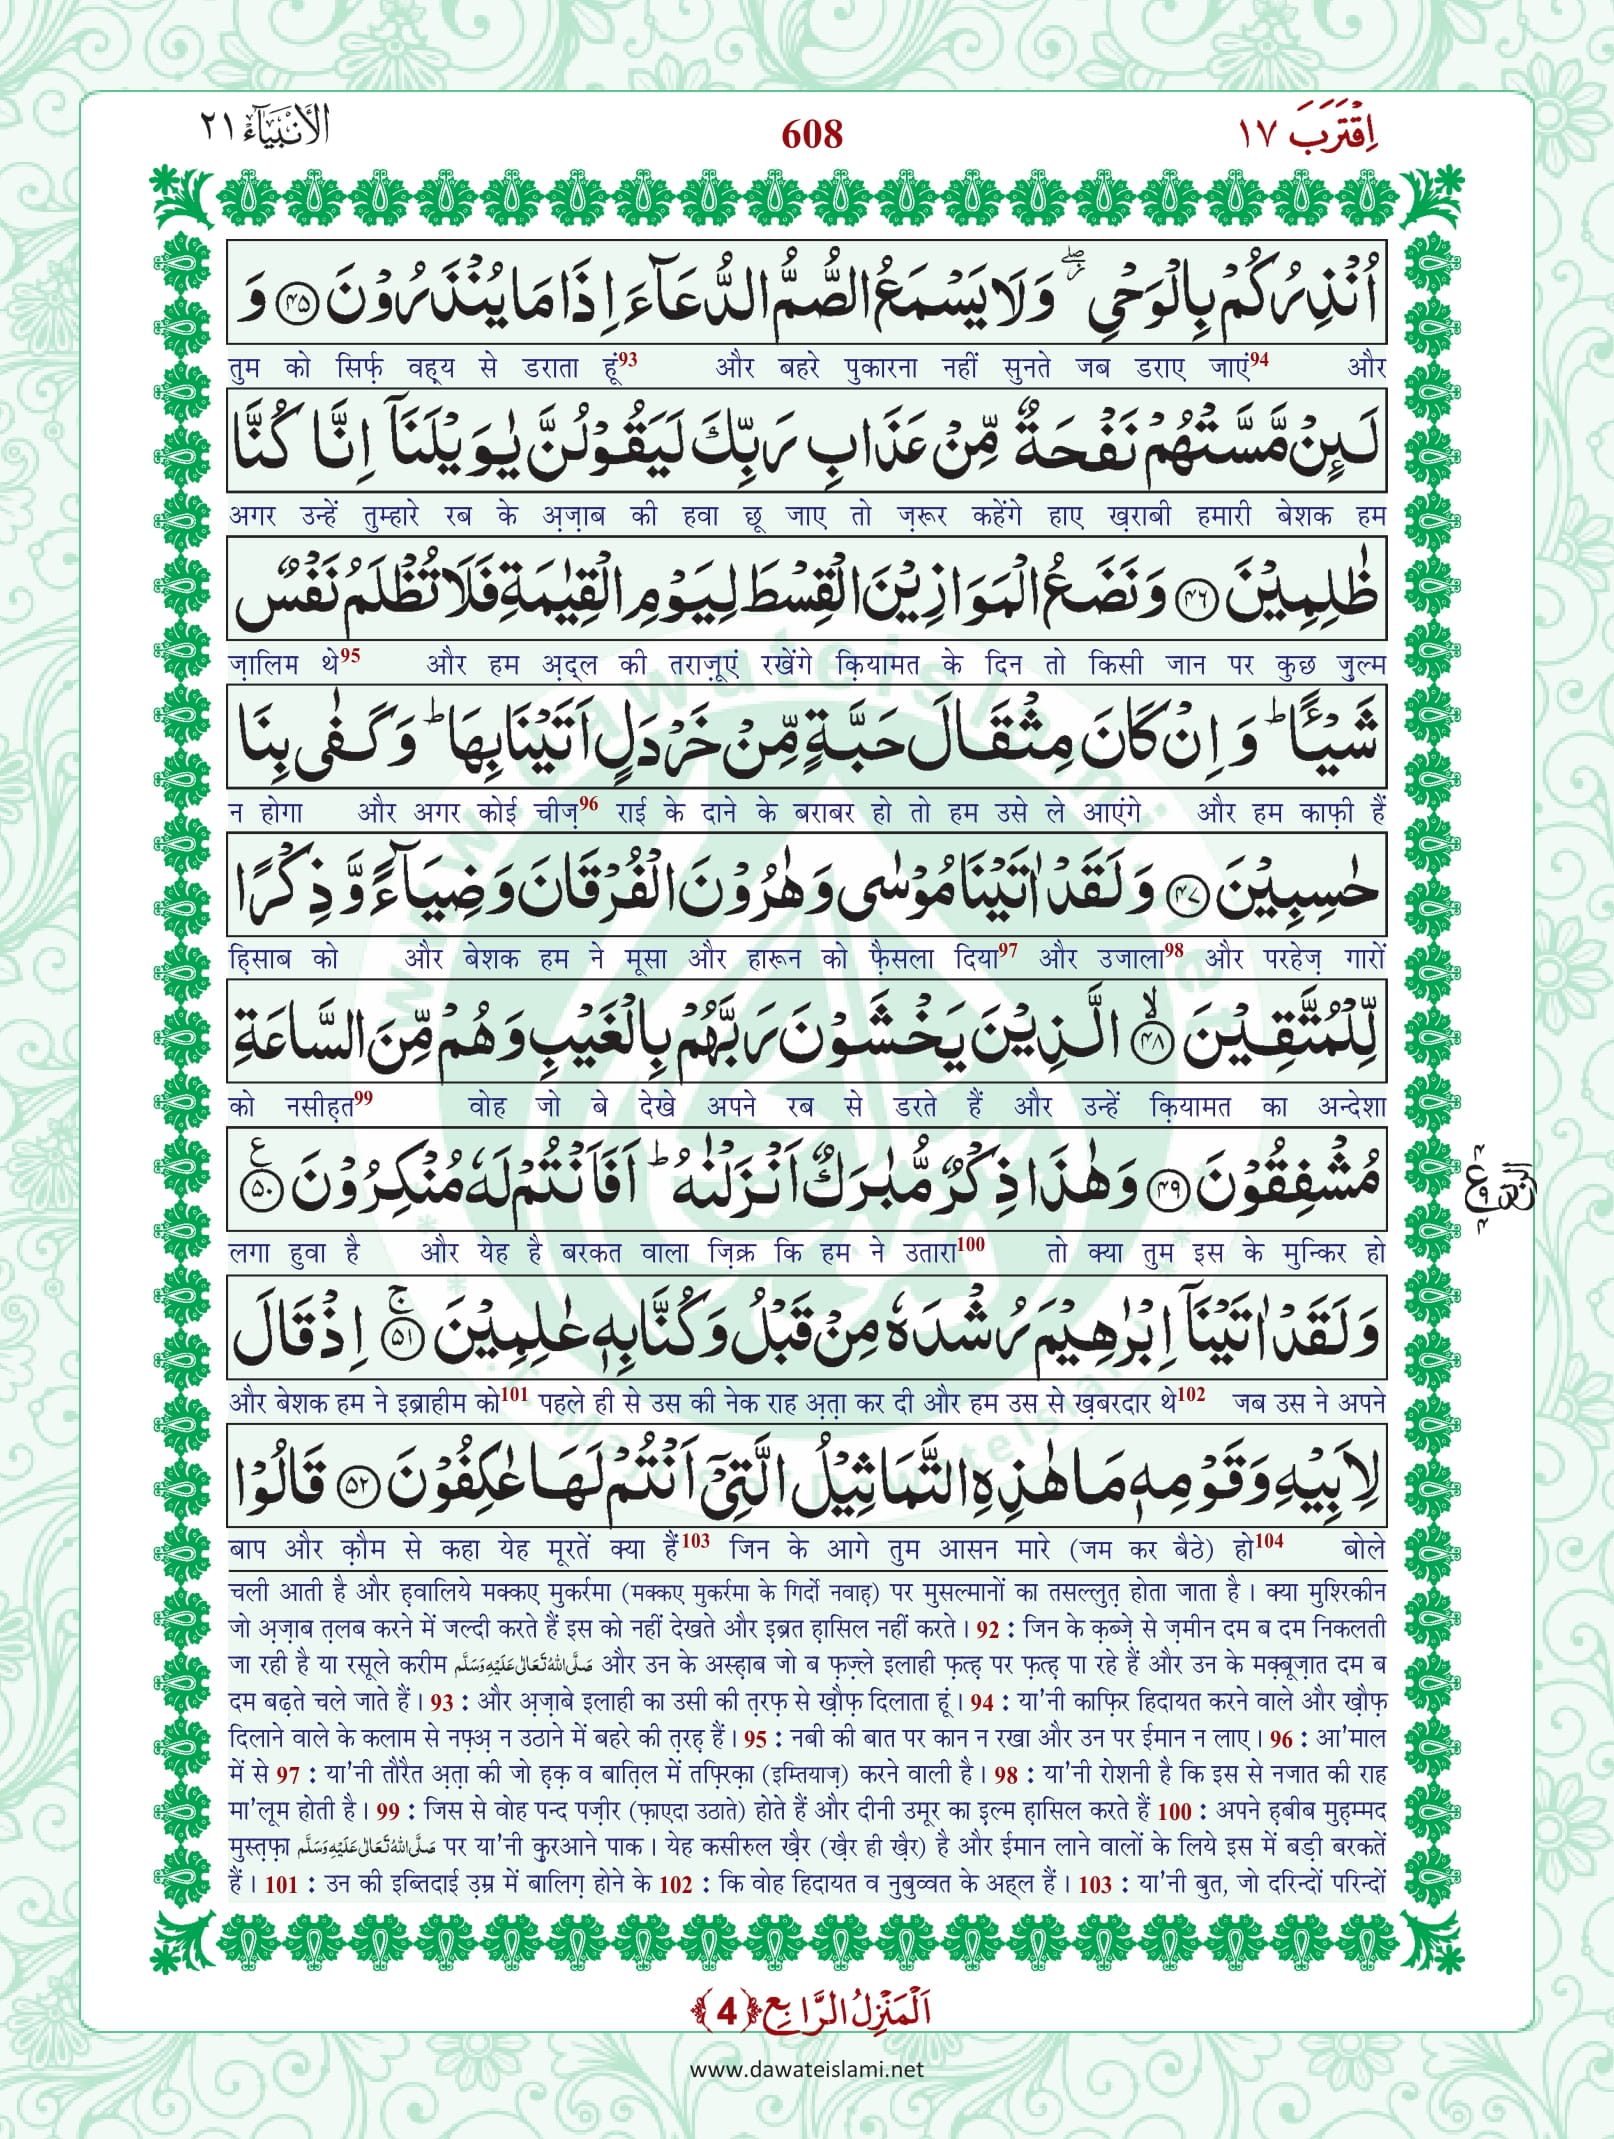 اِقْتَرَبَ ١٧
608
الْاَنْبِيَآء ٢١
اُنْذِرُكُمْ بِالْوَحْیِ ۖ٘ وَلَا یَسْمَعُ الصُّمُّ الدُّعَآءَ اِذَا مَا یُنْذَرُوْنَ ﴿۴۵﴾ وَ
तुम को सिर्फ़ वह़्य से डराता हूं93 और बहरे पुकारना नहीं सुनते जब डराए जाएं94 और
لَىِٕنْ مَّسَّتْهُمْ نَفْحَةٌ مِّنْ عَذَابِ رَبِّكَ لَیَقُوْلُنَّ یٰوَیْلَنَاۤ اِنَّا كُنَّا
अगर उन्हें तुम्हारे रब के अ़ज़ाब की हवा छू जाए तो ज़रूर कहेंगे हाए ख़राबी हमारी बेशक हम
ظٰلِمِیْنَ ﴿۴۶﴾ وَنَضَعُ الْمَوَازِیْنَ الْقِسْطَ لِیَوْمِ الْقِیٰمَةِ فَلَا تُظْلَمُ نَفْسٌ
ज़ालिम थे95 और हम अ़द्ल की तराज़ूएं रखेंगे क़ियामत के दिन तो किसी जान पर कुछ ज़ुल्म
شَیْــٴًـاؕ وَ اِنْ كَانَ مِثْقَالَ حَبَّةٍ مِّنْ خَرْدَلٍ اَتَیْنَا بِهَاؕ وَ كَفٰى بِنَا
न होगा और अगर कोई चीज़96 राई के दाने के बराबर हो तो हम उसे ले आएंगे और हम काफ़ी हैं
حٰسِبِیْنَ ﴿۴۷﴾ وَ لَقَدْ اٰتَیْنَا مُوْسٰى وَ هٰرُوْنَ الْفُرْقَانَ وَ ضِیَآءً وَّ ذِكْرًا
ह़िसाब को और बेशक हम ने मूसा और हारून को फ़ैसला दिया97 और उजाला98 और परहेज़ गारों
لِّلْمُتَّقِیْنَۙ ﴿۴۸﴾ الَّذِیْنَ یَخْشَوْنَ رَبَّهُمْ بِالْغَیْبِ وَ هُمْ مِّنَ السَّاعَةِ
को नसीह़त99 वोह जो बे देखे अपने रब से डरते हैं और उन्हें क़ियामत का अन्देशा
مُشْفِقُوْنَ ﴿۴۹﴾ وَ هٰذَا ذِكْرٌ مُّبٰرَكٌ اَنْزَلْنٰهُؕ اَفَاَنْتُمْ لَهٗ مُنْكِرُوْنَ۠ ﴿۵۰﴾
लगा हुवा है और येह है बरकत वाला ज़िक्र कि हम ने उतारा100 तो क्या तुम इस के मुन्किर हो
وَ لَقَدْ اٰتَیْنَاۤ اِبْرٰهِیْمَ رُشْدَهٗ مِنْ قَبْلُ وَ كُنَّا بِهٖ عٰلِمِیْنَۚ ﴿۵۱﴾ اِذْ قَالَ
और बेशक हम ने इब्राहीम को101 पहले ही से उस की नेक राह अ़त़ा कर दी और हम उस से ख़बरदार थे102 जब उस ने अपने
لِاَبِیْهِ وَ قَوْمِهٖ مَا هٰذِهِ التَّمَاثِیْلُ الَّتِیْۤ اَنْتُمْ لَهَا عٰكِفُوْنَ ﴿۵۲﴾ قَالُوْا
बाप और क़ौम से कहा येह मूरतें क्या हैं103 जिन के आगे तुम आसन मारे (जम कर बैठे) हो104 बोले
चली आती है और ह़वालिये मक्कए मुकर्रमा (मक्कए मुकर्रमा के गिर्दो नवाह़) पर मुसल्मानों का तसल्लुत़ होता जाता है । क्या मुश्रिकीन
जो अ़ज़ाब त़लब करने में जल्दी करते हैं इस को नहीं देखते और इ़ब्रत ह़ासिल नहीं करते । 92 : जिन के क़ब्ज़े से ज़मीन दम ब दम निकलती
जा रही है या रसूले करीम صَلَّى اللهُ تَعَالٰى عَلَيْهِ وَسَلَّم और उन के अस्ह़ाब जो ब फ़ज़्ले इलाही फ़त्ह़ पर फ़त्ह़ पा रहे हैं और उन के मक़्बूज़ात दम ब
दम बढ़ते चले जाते हैं । 93 : और अ़ज़ाबे इलाही का उसी की त़रफ़ से ख़ौफ़ दिलाता हूं । 94 : या'नी काफ़िर हिदायत करने वाले और ख़ौफ़
दिलाने वाले के कलाम से नफ़्अ़ न उठाने में बहरे की त़रह़ हैं । 95 : नबी की बात पर कान न रखा और उन पर ईमान न लाए । 96 : आ'माल
में से 97 : या'नी तौरैत अ़त़ा की जो ह़क़ व बात़िल में तफ़्रिक़ा (इम्तियाज़) करने वाली है । 98 : या'नी रोशनी है कि इस से नजात की राह
मा'लूम होती है । 99 : जिस से वोह पन्द पज़ीर (फ़ाएदा उठाते) होते हैं और दीनी उमूर का इ़ल्म ह़ासिल करते हैं 100 : अपने ह़बीब मुह़म्मद
मुस्त़फ़ा صَلَّى اللهُ تَعَالٰى عَلَيْهِ وَسَلَّم पर या'नी क़ुरआने पाक । येह कसीरुल ख़ैर (ख़ैर ही ख़ैर) है और ईमान लाने वालों के लिये इस में बड़ी बरकतें
हैं । 101 : उन की इब्तिदाई उ़म्र में बालिग़ होने के 102 : कि वोह हिदायत व नुबुव्वत के अह्ल हैं । 103 : या'नी बुत, जो दरिन्दों परिन्दों
اَلْمَنْزِلُ الرَّابِع ﴿4﴾
www.dawateislami.net